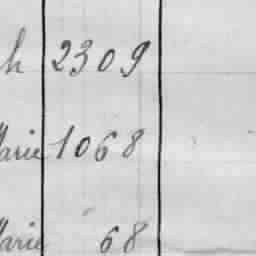 h 2309
Marie 1068
Marie 68